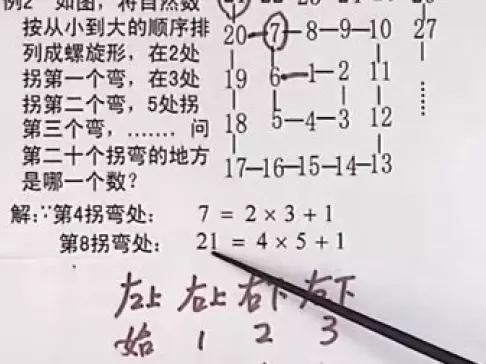 例2 如图，将自然数
按从小到大的顺序排
列成螺旋形，在2处
拐第一个弯，在3处
拐第二个弯，5处拐
第三个弯，……. 问
第二十个拐弯的地方
是哪一个数？
20—7—8—9—10 27
19 6—1—2 11
18 5—4—3 12 ……
17—16—15—14—13
解：∵第4拐弯处： 7 = 2 × 3 + 1
第8拐弯处： 21 = 4 × 5 + 1
左上 右上 右下 右下
始 1 2 3